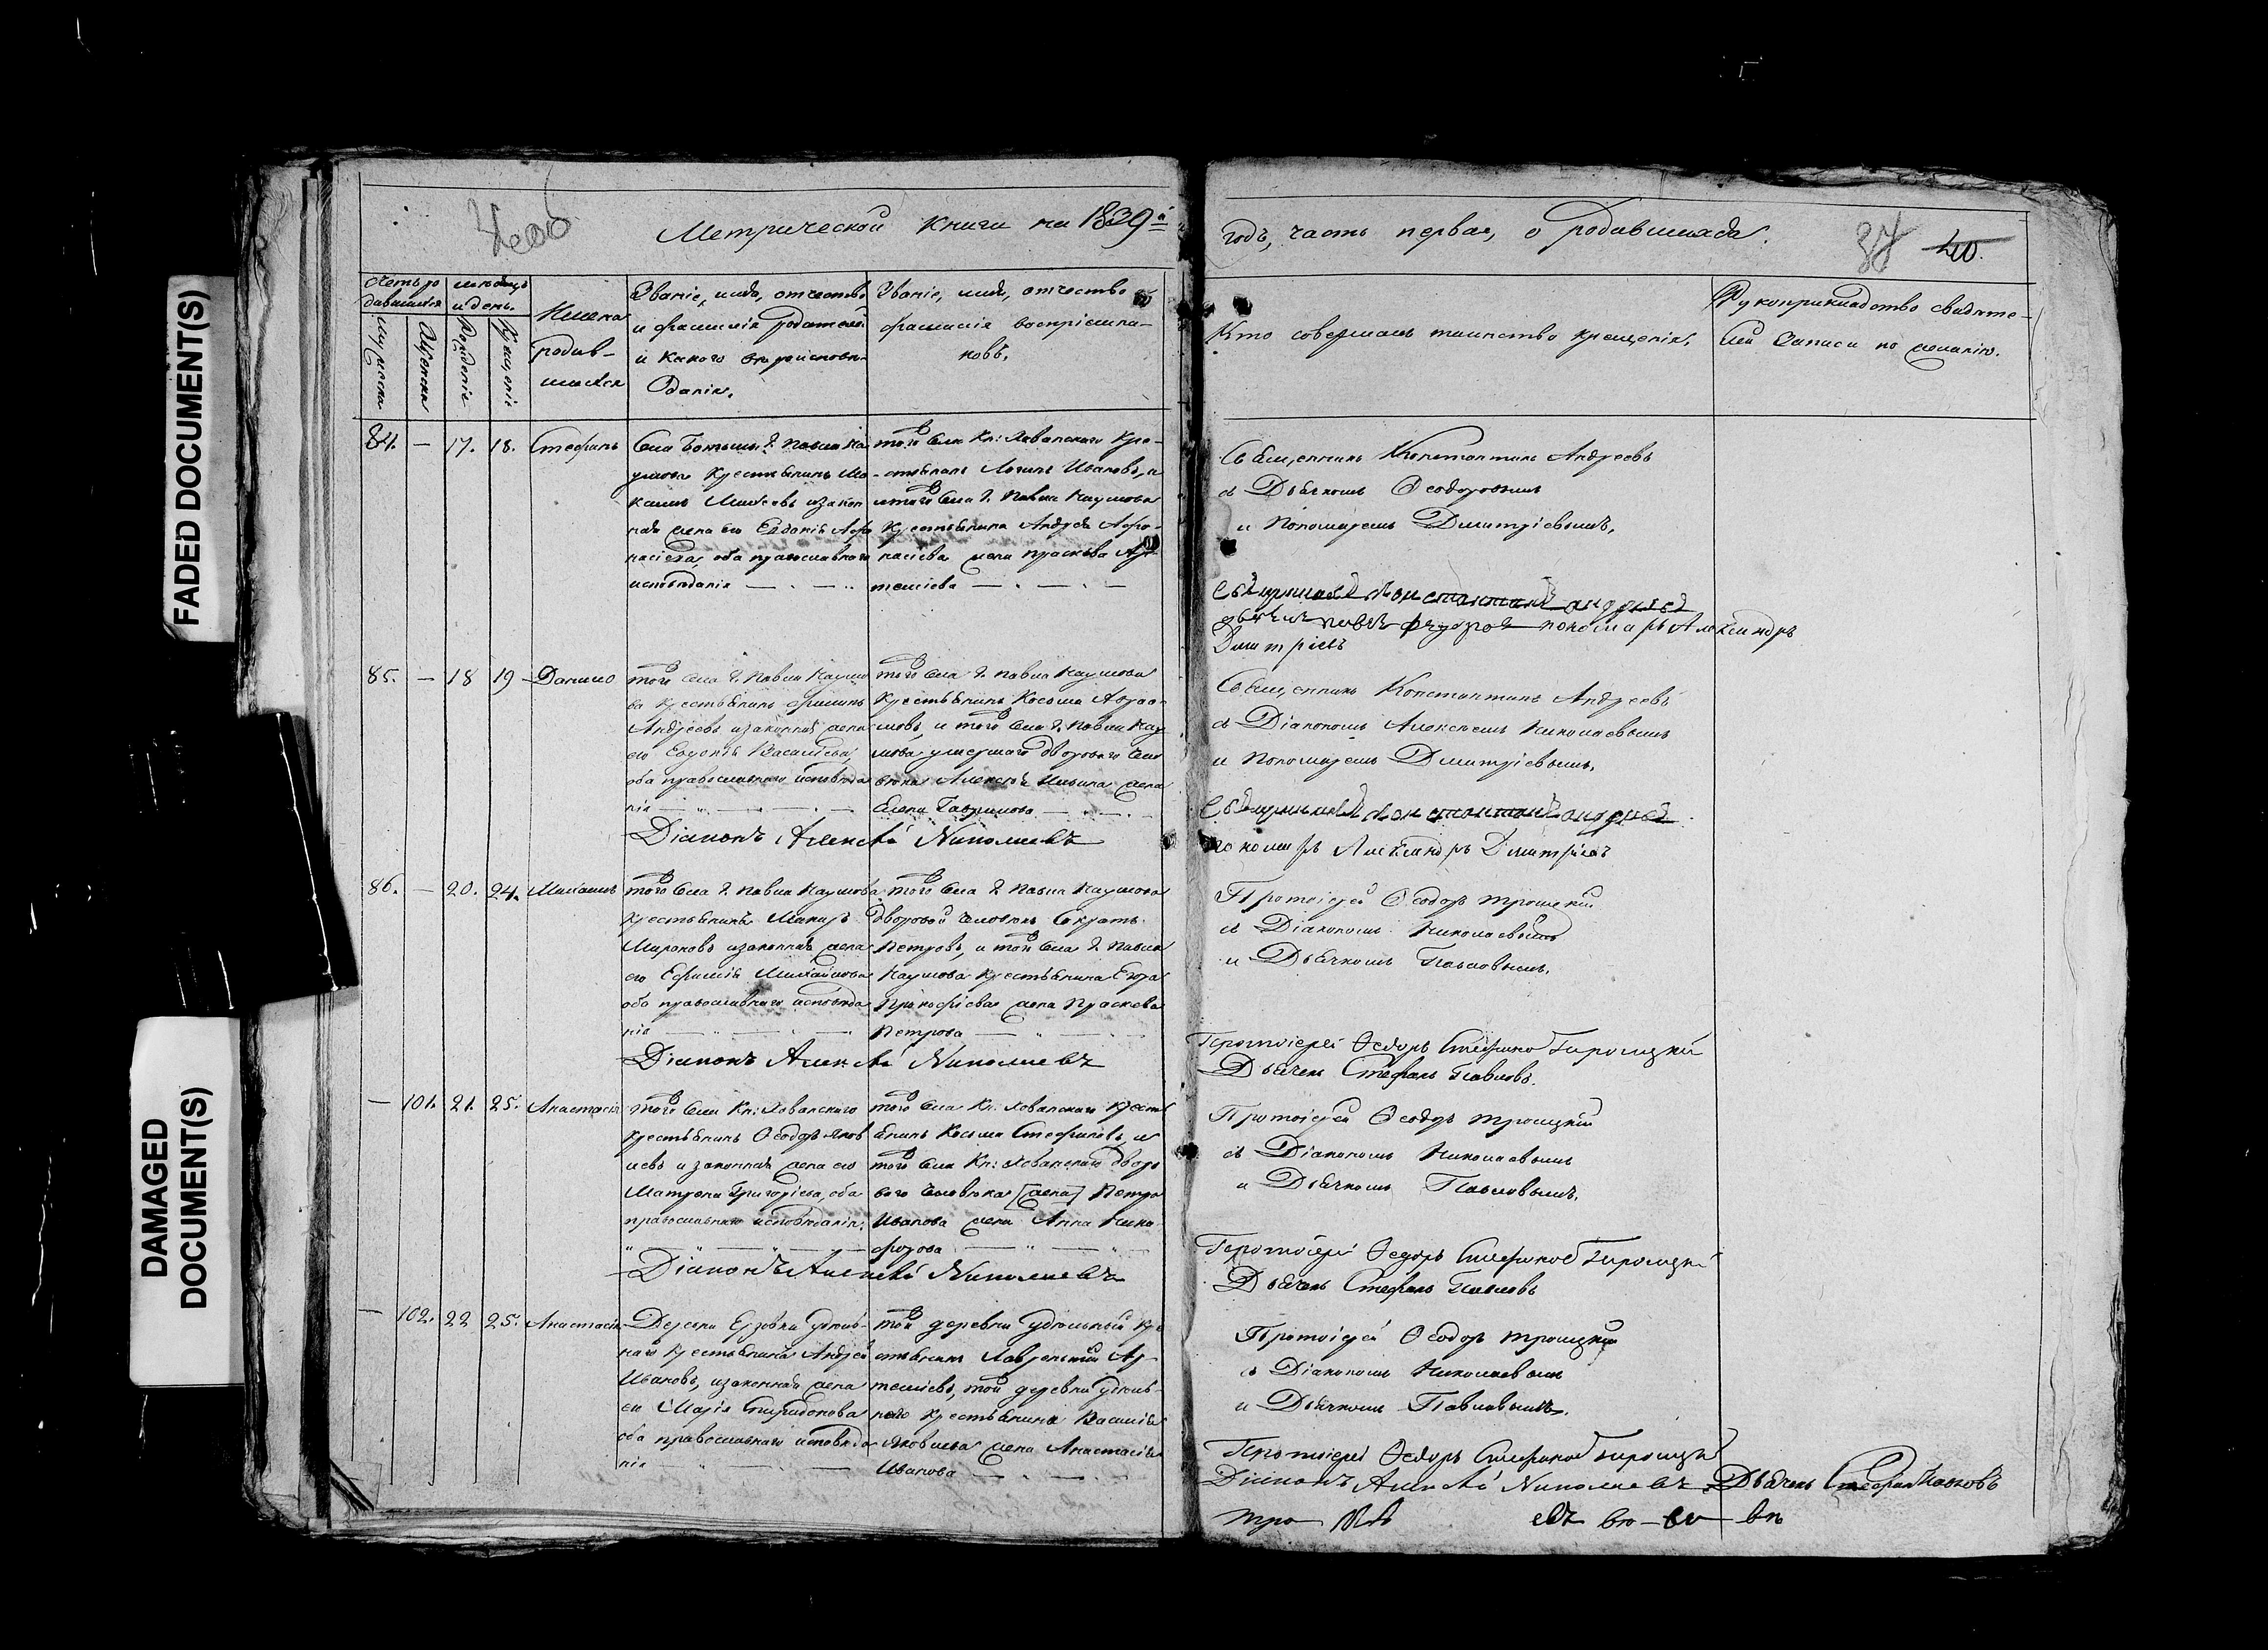 FADED DOCUMENT(S)
DAMAGED
DOCUMENT(S)
Метрической книги на 1839й
годъ, часть первая, о родившихся.
37 40.
Счетъ ро
дившихся
мѣсяцъ
и день.
Мужеска
Женска
Рожденіе
Крещеніе
Имена
родив-
шихся
Званіе, имя, отчество
и фамилія родителей
и какого вѣроисповѣ-
данія.
Званіе, имя, отчество и
фамилія воспріемни-
ковъ.
Кто совершалъ таинство крещенія.
Рукоприкладство свидѣте-
лей записи по желанію.
84. — 17. 18. Стефанъ
Села Г. Павла На
умова крестьянинъ Ма
каровъ и закон
ная жена его Евдокія Афа
насіева, оба православнаго
исповѣданія
того села Кн: Хованскаго кре-
стьянинъ Логинъ Ивановъ, и
того села Г. Павла Наумова
крестьянина Андрея Афа-
насіева жена Прасковья Ар-
теміева
Священникъ Константинъ Андреевъ
съ Дьячкомъ Ѳеодоровымъ
и Пономаремъ Дмитріевымъ.
Священникъ Константинъ Андреевъ
Федоровъ пономарь Александръ
Димитріевъ
85. — 18 19 Данило
того села Г. Павла Наумо
ва крестьянинъ Филипъ
Андреевъ и законная жена
его Евдокія Васильева,
оба православнаго исповѣда
нія
того села Г. Павла Наумова
крестьянинъ Косьма Авраа-
мовъ, и того села Г. Павла Нау
мова умершаго двороваго чело
вѣка Алексѣя Ильина жена
Елена Гаврилова
Діаконъ Алексѣй Николаевъ
Священникъ Константинъ Андреевъ
съ Діакономъ Алексѣемъ Николаевымъ
и Пономаремъ Дмитріевымъ.
Священникъ Константинъ Андреевъ
пономарь Александръ Димитріевъ
86. — 20. 24. Михаилъ
того села Г. Павла Наумова
крестьянинъ Макаръ
Мироновъ и законная жена
его Ефимія Михайлова
оба православнаго исповѣда
нія
того села Г. Павла Наумова
дворовой человѣкъ Сократъ
Петровъ, и того села Г. Павла
Наумова крестьянина Егора
Прокофіева жена Праскева
Петрова
Діаконъ Алексѣй Николаевъ
Протоіерей Ѳеодоръ Троицкій
съ Діакономъ Николаевымъ
и Дьячкомъ Павловымъ.
Протоіерей Ѳедоръ Стефановъ Троицкій
Дьячекъ Стефанъ Павловъ.
— 101. 21. 25. Анастасія
того села Кн: Хованскаго
крестьянинъ Ѳеодоръ Яков
левъ и законная жена его
Матрена Григорьева, оба
православнаго исповѣданія.
того села Кн: Хованскаго кресть
янинъ Косьма Стефановъ, и
того села Кн: Хованскаго дворо
ваго человѣка [жена] Петра
Иванова жена Анна Ники
форова
Діаконъ Алексѣй Николаевъ
Протоіерей Ѳеодоръ Троицкій
съ Діакономъ Николаевымъ
и Дьячкомъ Павловымъ.
Протоіерей Ѳедоръ Стефановъ Троицкій
Дьячекъ Стефанъ Павловъ
— 102. 22 25. Анастасія
Деревни Ерзовки удѣль-
наго крестьянина Андрей
Ивановъ, и законная жена
его Марія Спиридонова
оба православнаго исповѣда
нія
той деревни удѣльный кре
стьянинъ Лаврентій Ар-
теміевъ, той деревни удѣль-
наго крестьянина Василія
Яковлева жена Анастасія
Иванова
Протоіерей Ѳеодоръ Троицкій
съ Діакономъ Николаевымъ
и Дьячкомъ Павловымъ.
Протоіерей Ѳедоръ Стефановъ Троицкій
Діаконъ Алексѣй Николаевъ Дьячекъ Стефанъ Павловъ